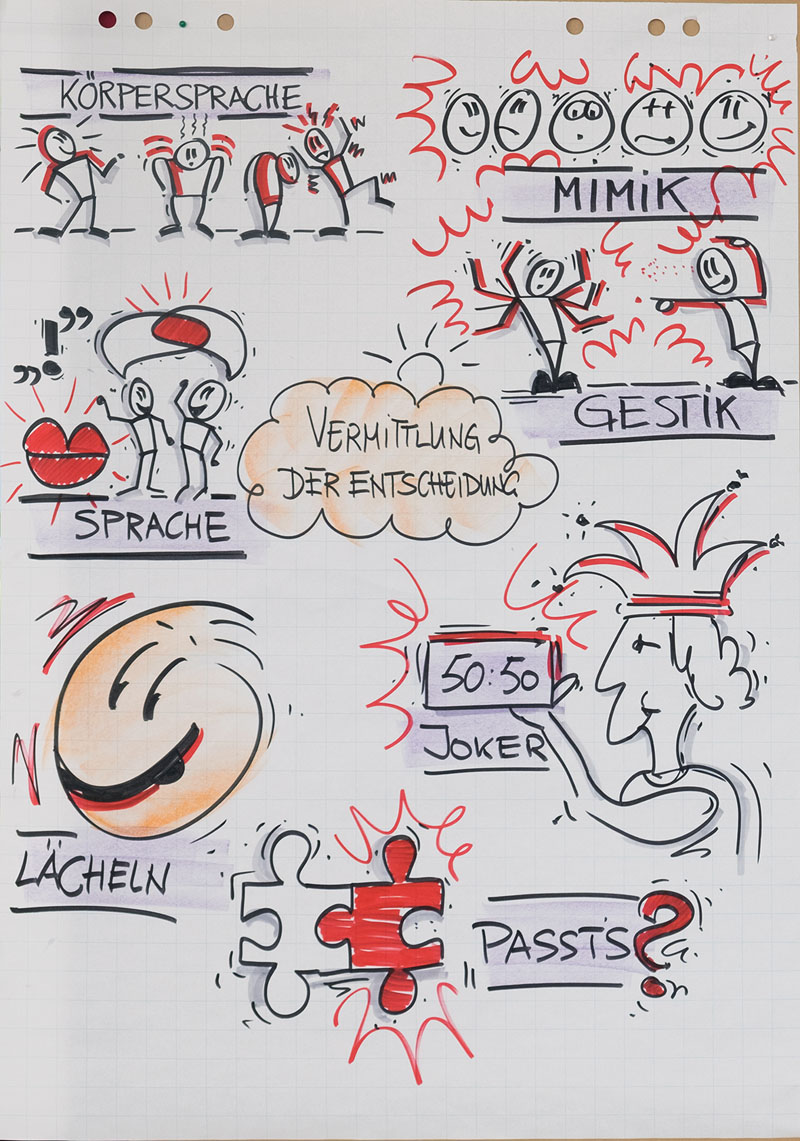 KÖRPERSPRACHE
MIMIK
GESTIK
„!”
SPRACHE
VERMITTLUNG
DER ENTSCHEIDUNG
50:50
JOKER
LÄCHELN
PASST'S?